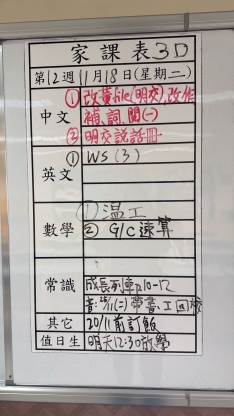 家課表3D
第12週11月18日(星期二)
中文
① 改黃file(明交),改作
補、詞、閱(一)
③ 明交說話冊
英文
① WS (3)
數學
① 温工
② G/C 速算
常識
成長列車p.10-12
25/11(二)帶書、工
其它
20/11前訂飯
值日生
明天12:30放學